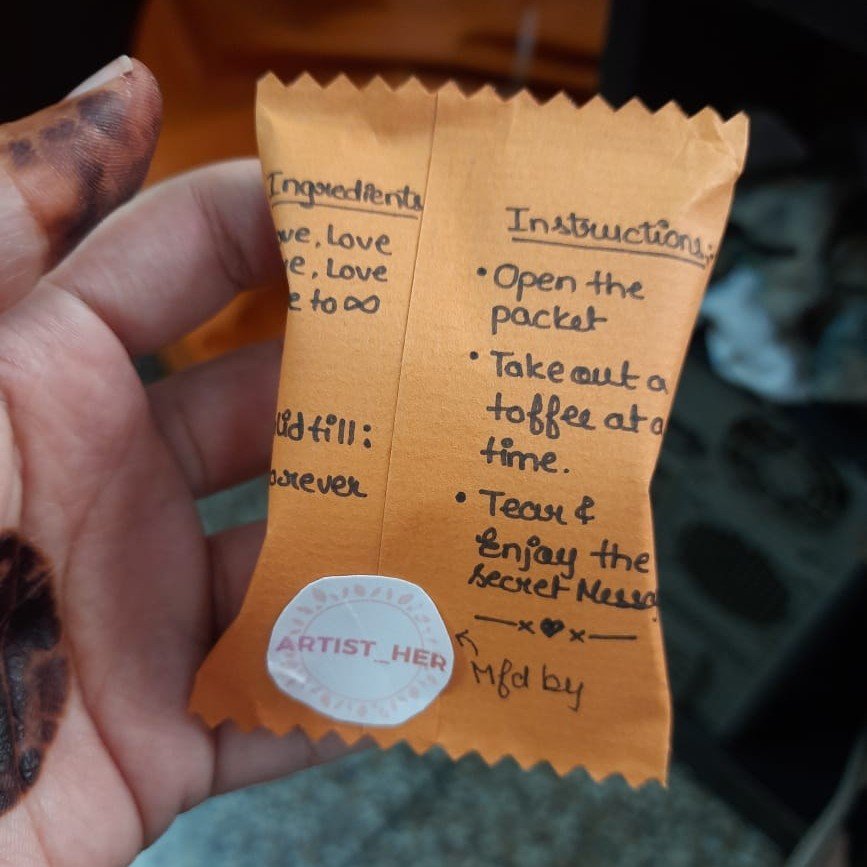 Ingredients
ve, Love
e, Love
e to ∞
lid till:
orever
Instructions:
• Open the
packet
• Take out a
toffee at a
time.
• Tear &
Enjoy the
secret Messa
—x♥x—
Mfd by
ARTIST_HER